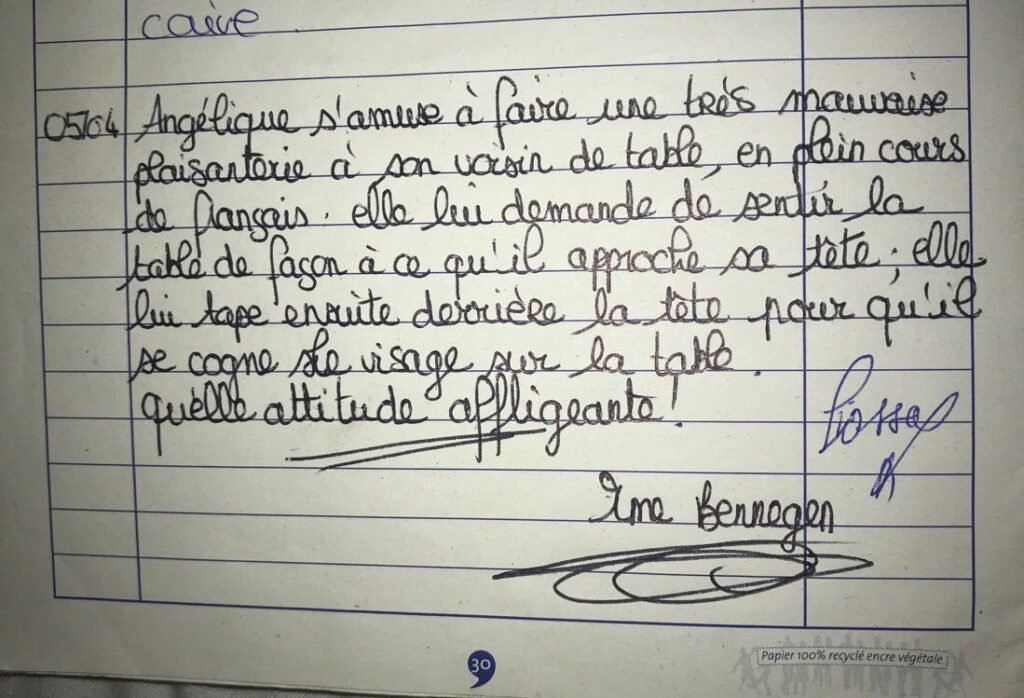 caire
05/04 Angélique s'amuse à faire une trés mauvaise
plaisanterie à son voisin de table, en plein cours
de français. elle lui demande de sentir la
table de façon à ce qu'il approche sa tête ; elle
lui tape ensuite derrière la tête pour qu'il
se cogne le visage sur la table.
quelle attitude affligeante !
Mme Bennegen
30
Papier 100% recyclé encre végétale